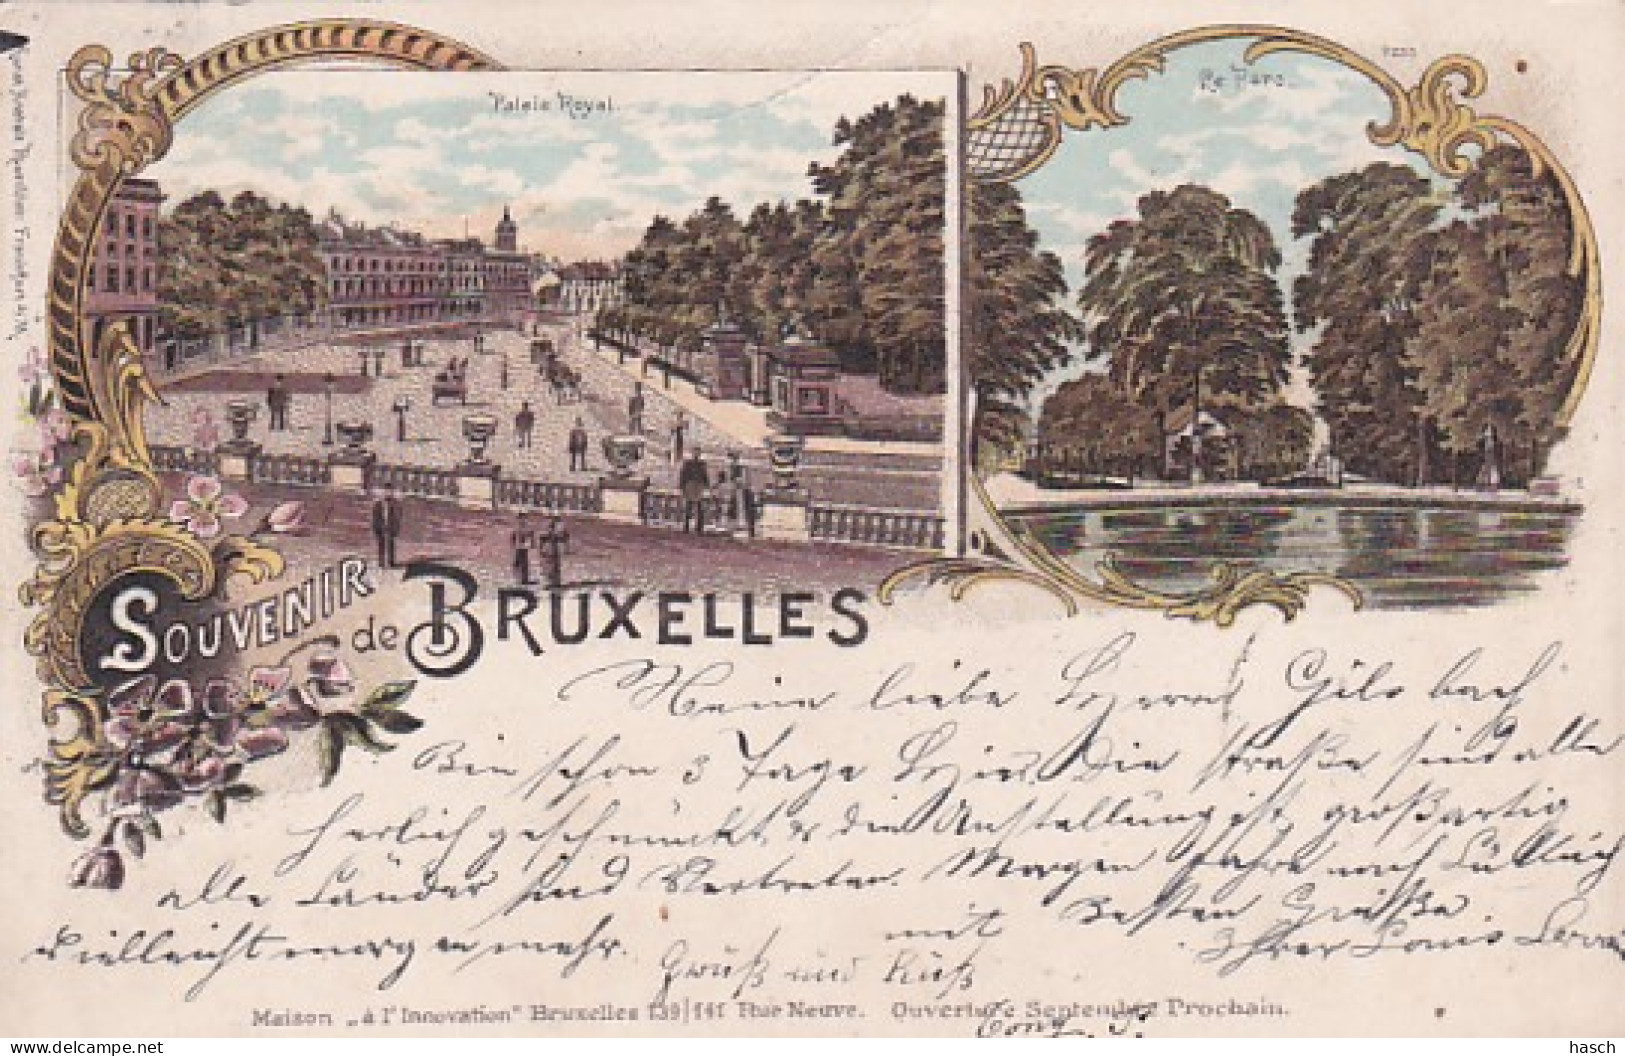 Palais Royal.
Le Parc.
Souvenir de Bruxelles
Meine liebe
Bin schon 3 Tage hier. Die Straße sind alle
herlich geschmückt, & die Ausstellung ist großartig
alle Länder sind Vertreten. Morgen fahre nach Lüttich
vielleicht morgen mehr. mit Besten Grüße.
Ihrer Louis
Gruß und Kuß
Maison „à l'Innovation" Bruxelles 139/141 Rue Neuve. Ouverture Septembre Prochain.
hasch